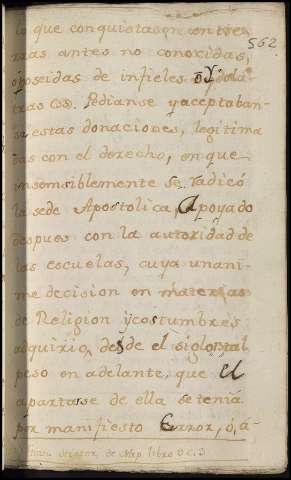 lo que conquistasen en tier-
rras antes no conocidas,
562
oposeidas de infieles o Ydola-
tras (33). Pedianse y aceptaban-
se estas donaciones, legitima
das con el derecho, en que
insensiblemente se radicó
la sede Apostolica, Apoyado
despues con la autoridad de
las escuelas, cuya unani-
me decision en materias
de Religion ycostumbres
adquirio, desde el siglo, tal
peso en adelante, que el
apartarse de ella se tenia
por manifiesto Error, ó, á-
libro